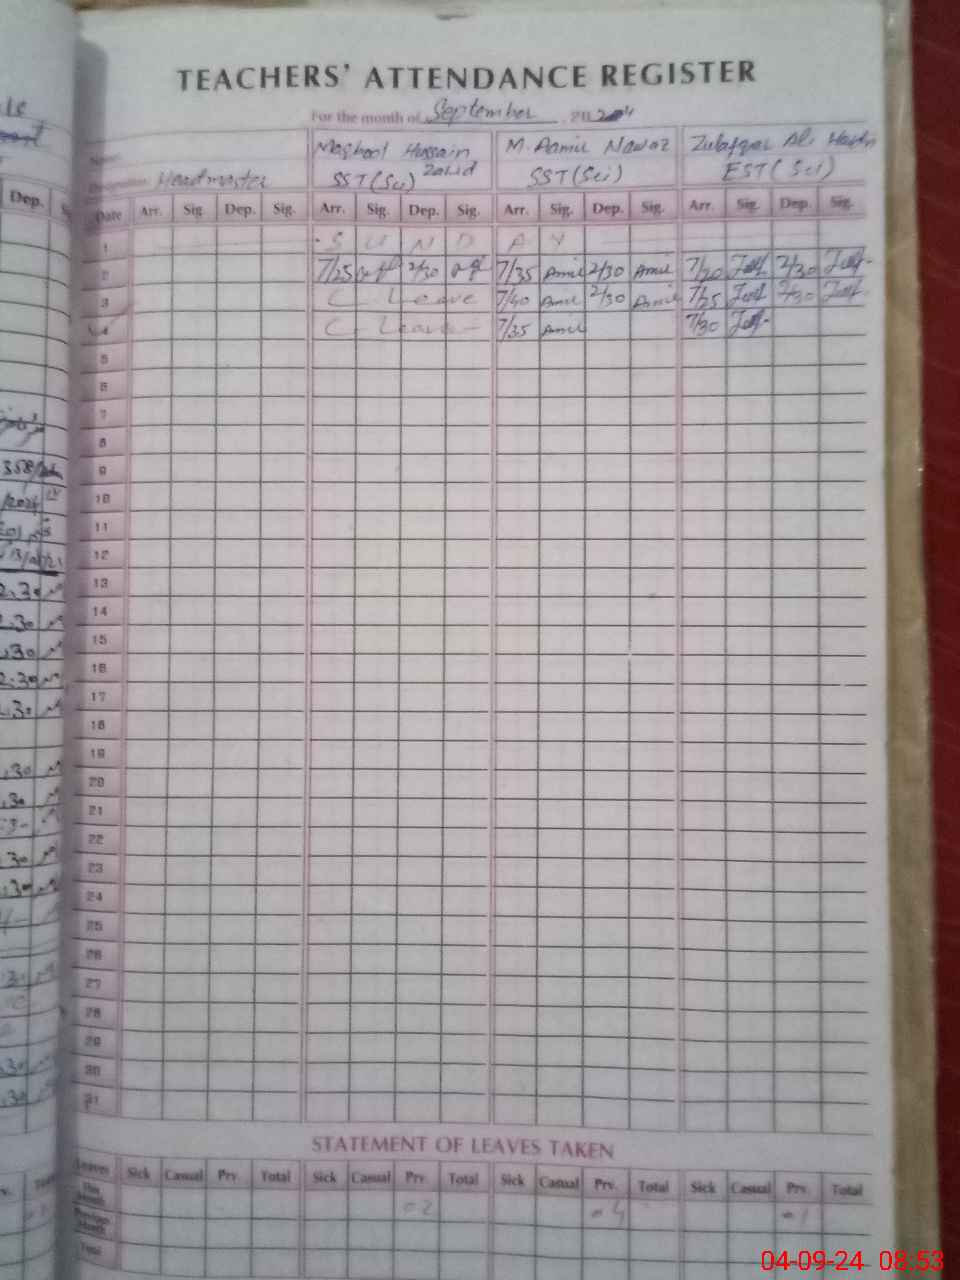 TEACHERS' ATTENDANCE REGISTER
For the month of September, 2024
Name
Maqbool Hussain Zahid
M. Aamir Nawaz
Zulafqar Ali
Designation Headmaster
SST (Sci)
SST (Sci)
EST (Sci)
Date Arr. Sig. Dep. Sig. Arr. Sig. Dep. Sig. Arr. Sig. Dep. Sig. Arr. Sig. Dep. Sig.
1 S U N D A Y
2 7/25 2/30 7/35 Amir 2/30 Amir 7/20 2/30
3 C. Leave 7/40 Amir 2/30 Amir 7/25 2/30
4 C. Leave 7/35 Amir 7/30
5
6
7
8
9
10
11
12
13
14
15
16
17
18
19
20
21
22
23
24
25
26
27
28
29
30
31
STATEMENT OF LEAVES TAKEN
Leaves Sick Casual Prv. Total Sick Casual Prv. Total Sick Casual Prv. Total Sick Casual Prv. Total
This Month =2 =4 =1
Previous Month
Total
Dep.
358/
2.30
2.30
.30
2.30
2.30
.30
.30
.30
.30
.30
.30
.30
04-09-24 08:53